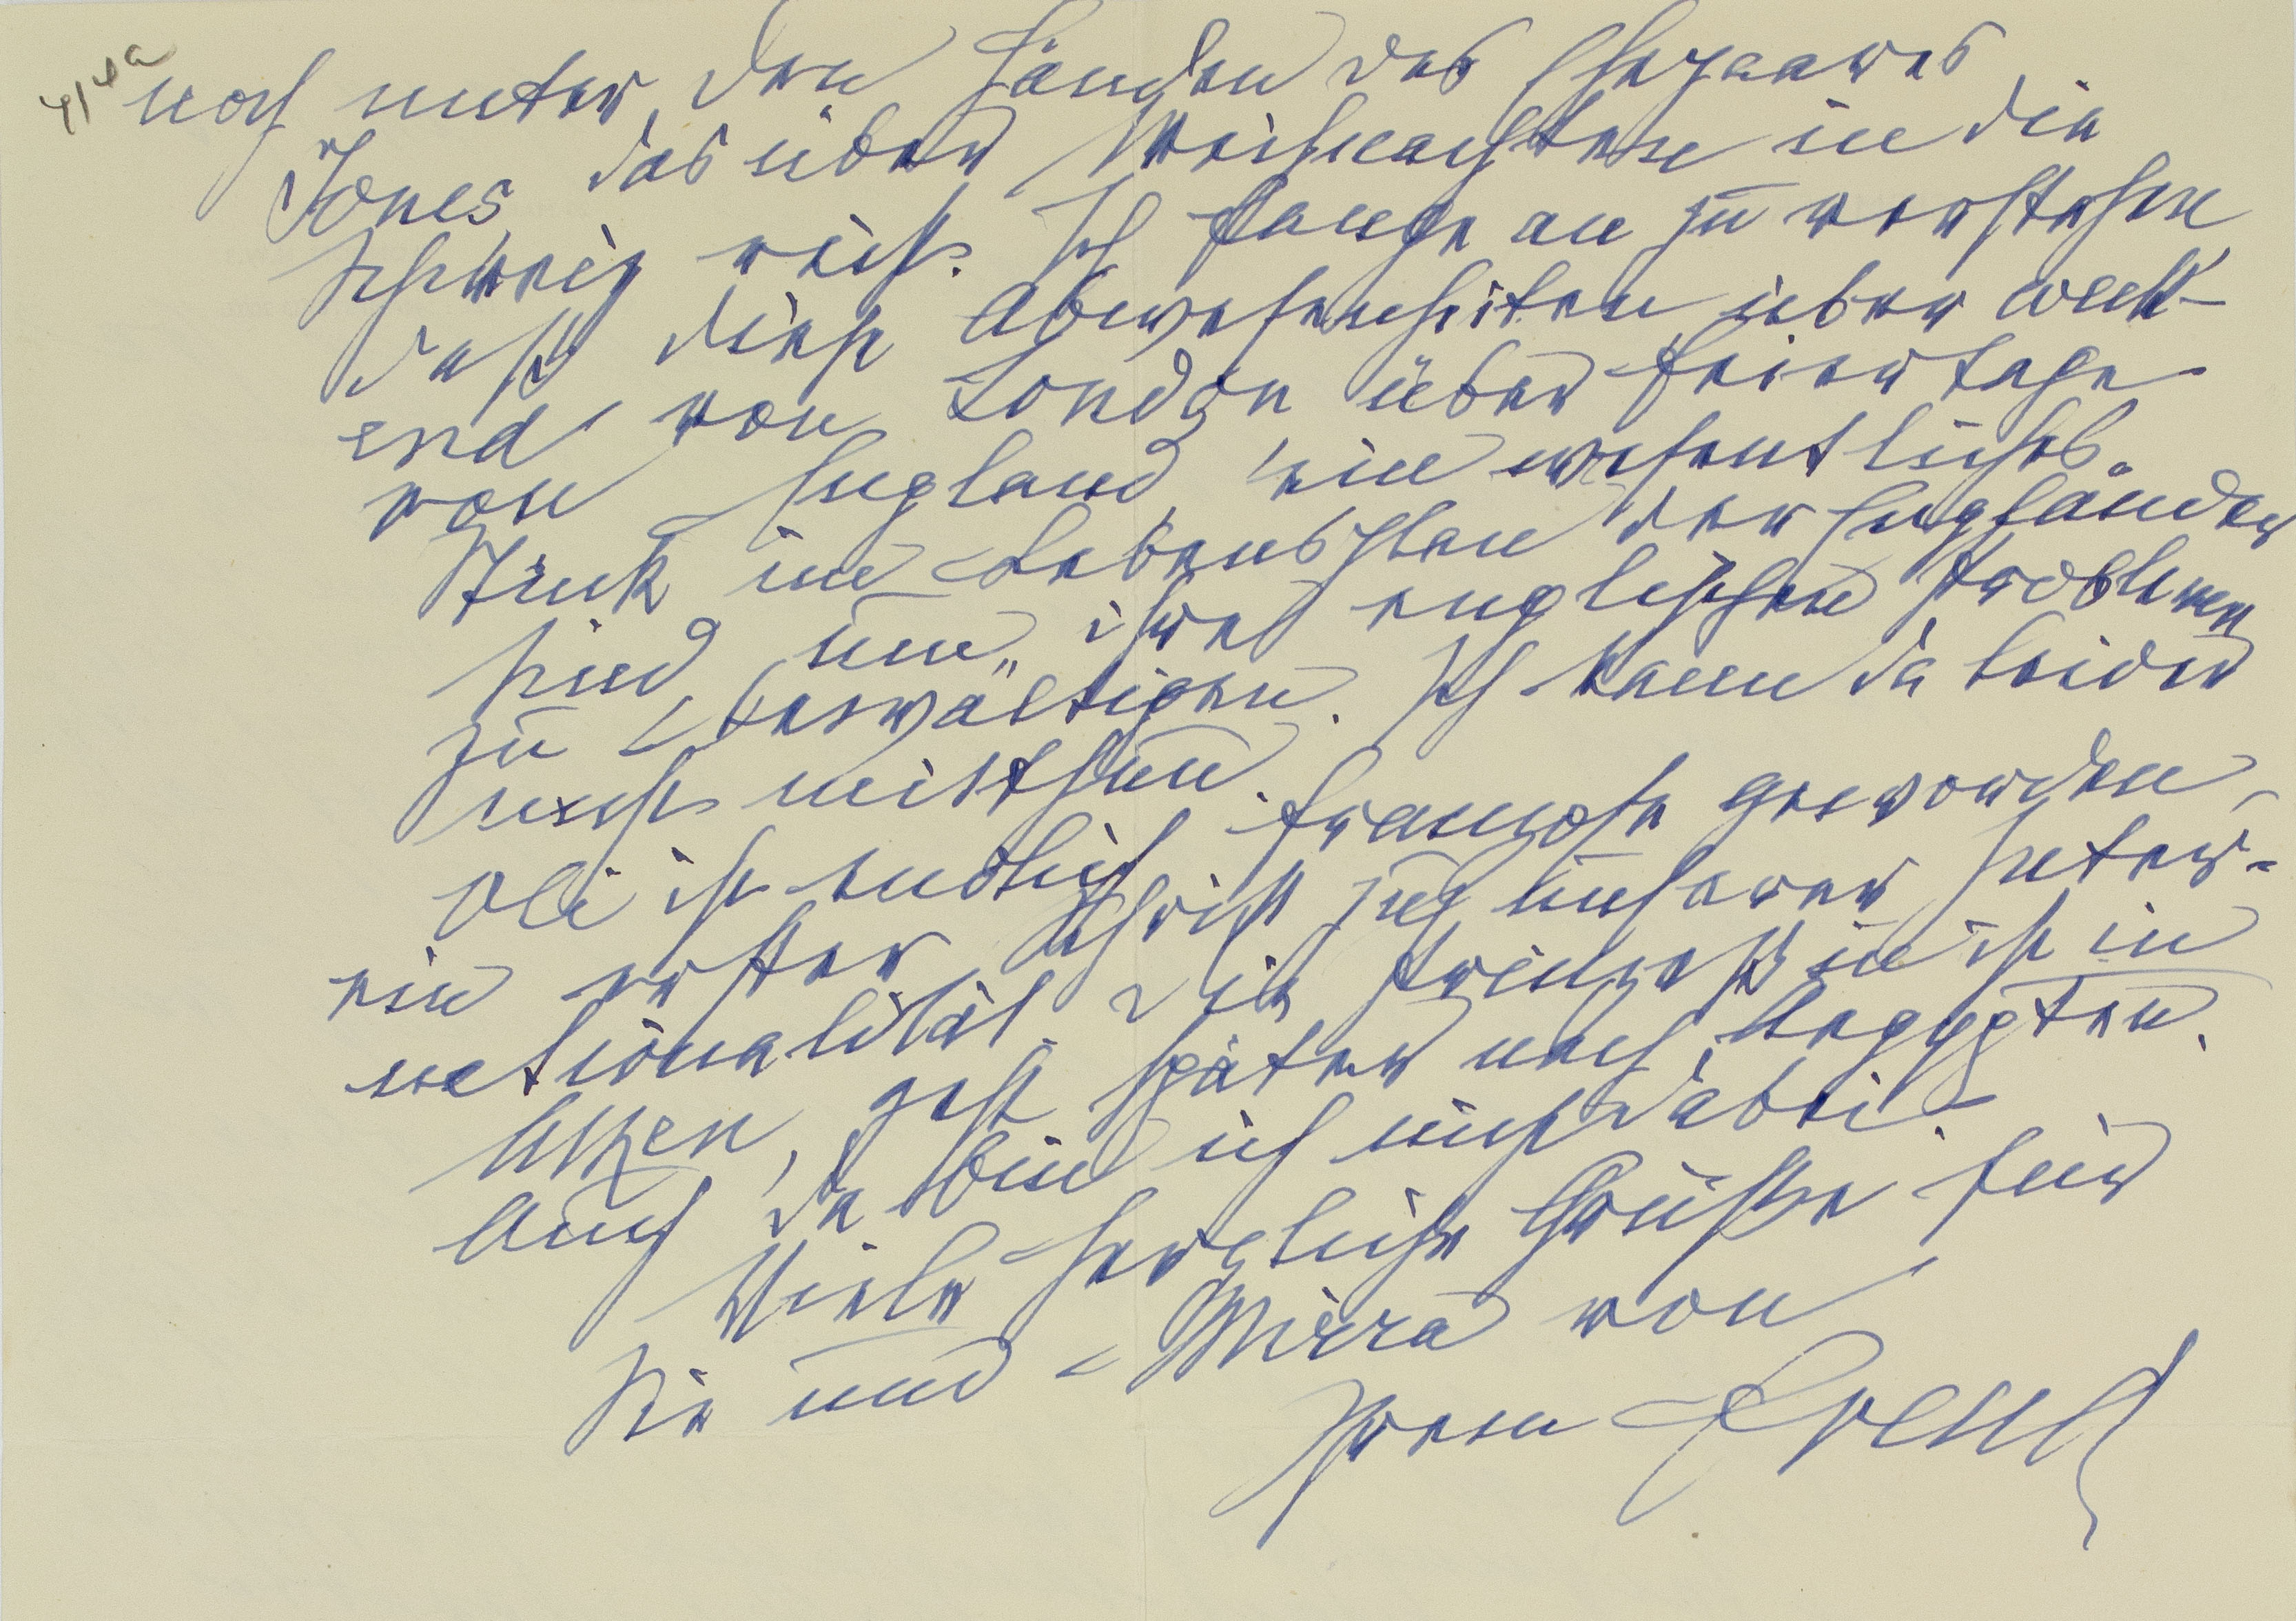 414a
noch unter den Händen des Ehepaares
Jones, das über Weihnachten in die
Schweiz reist. Ich fange an zu verstehen
daß diese Abwesenheiten über week-
end von London über Feiertage
von England ein wesentliches
Stück im Lebensplan der Engländer
sind um ihre englischen Probleme
zu bewältigen. Ich kann da leider
nicht mitthun.
Oli ist endlich Franzose geworden,
ein erster Schritt zu unserer Inter-
nationalität. Die Prinzessin ist in
Athen, geht später nach Aegypten.
Auch da bin ich nicht dabei.
Viele herzliche Grüße für
Sie und Mirra von
Ihrem Freud